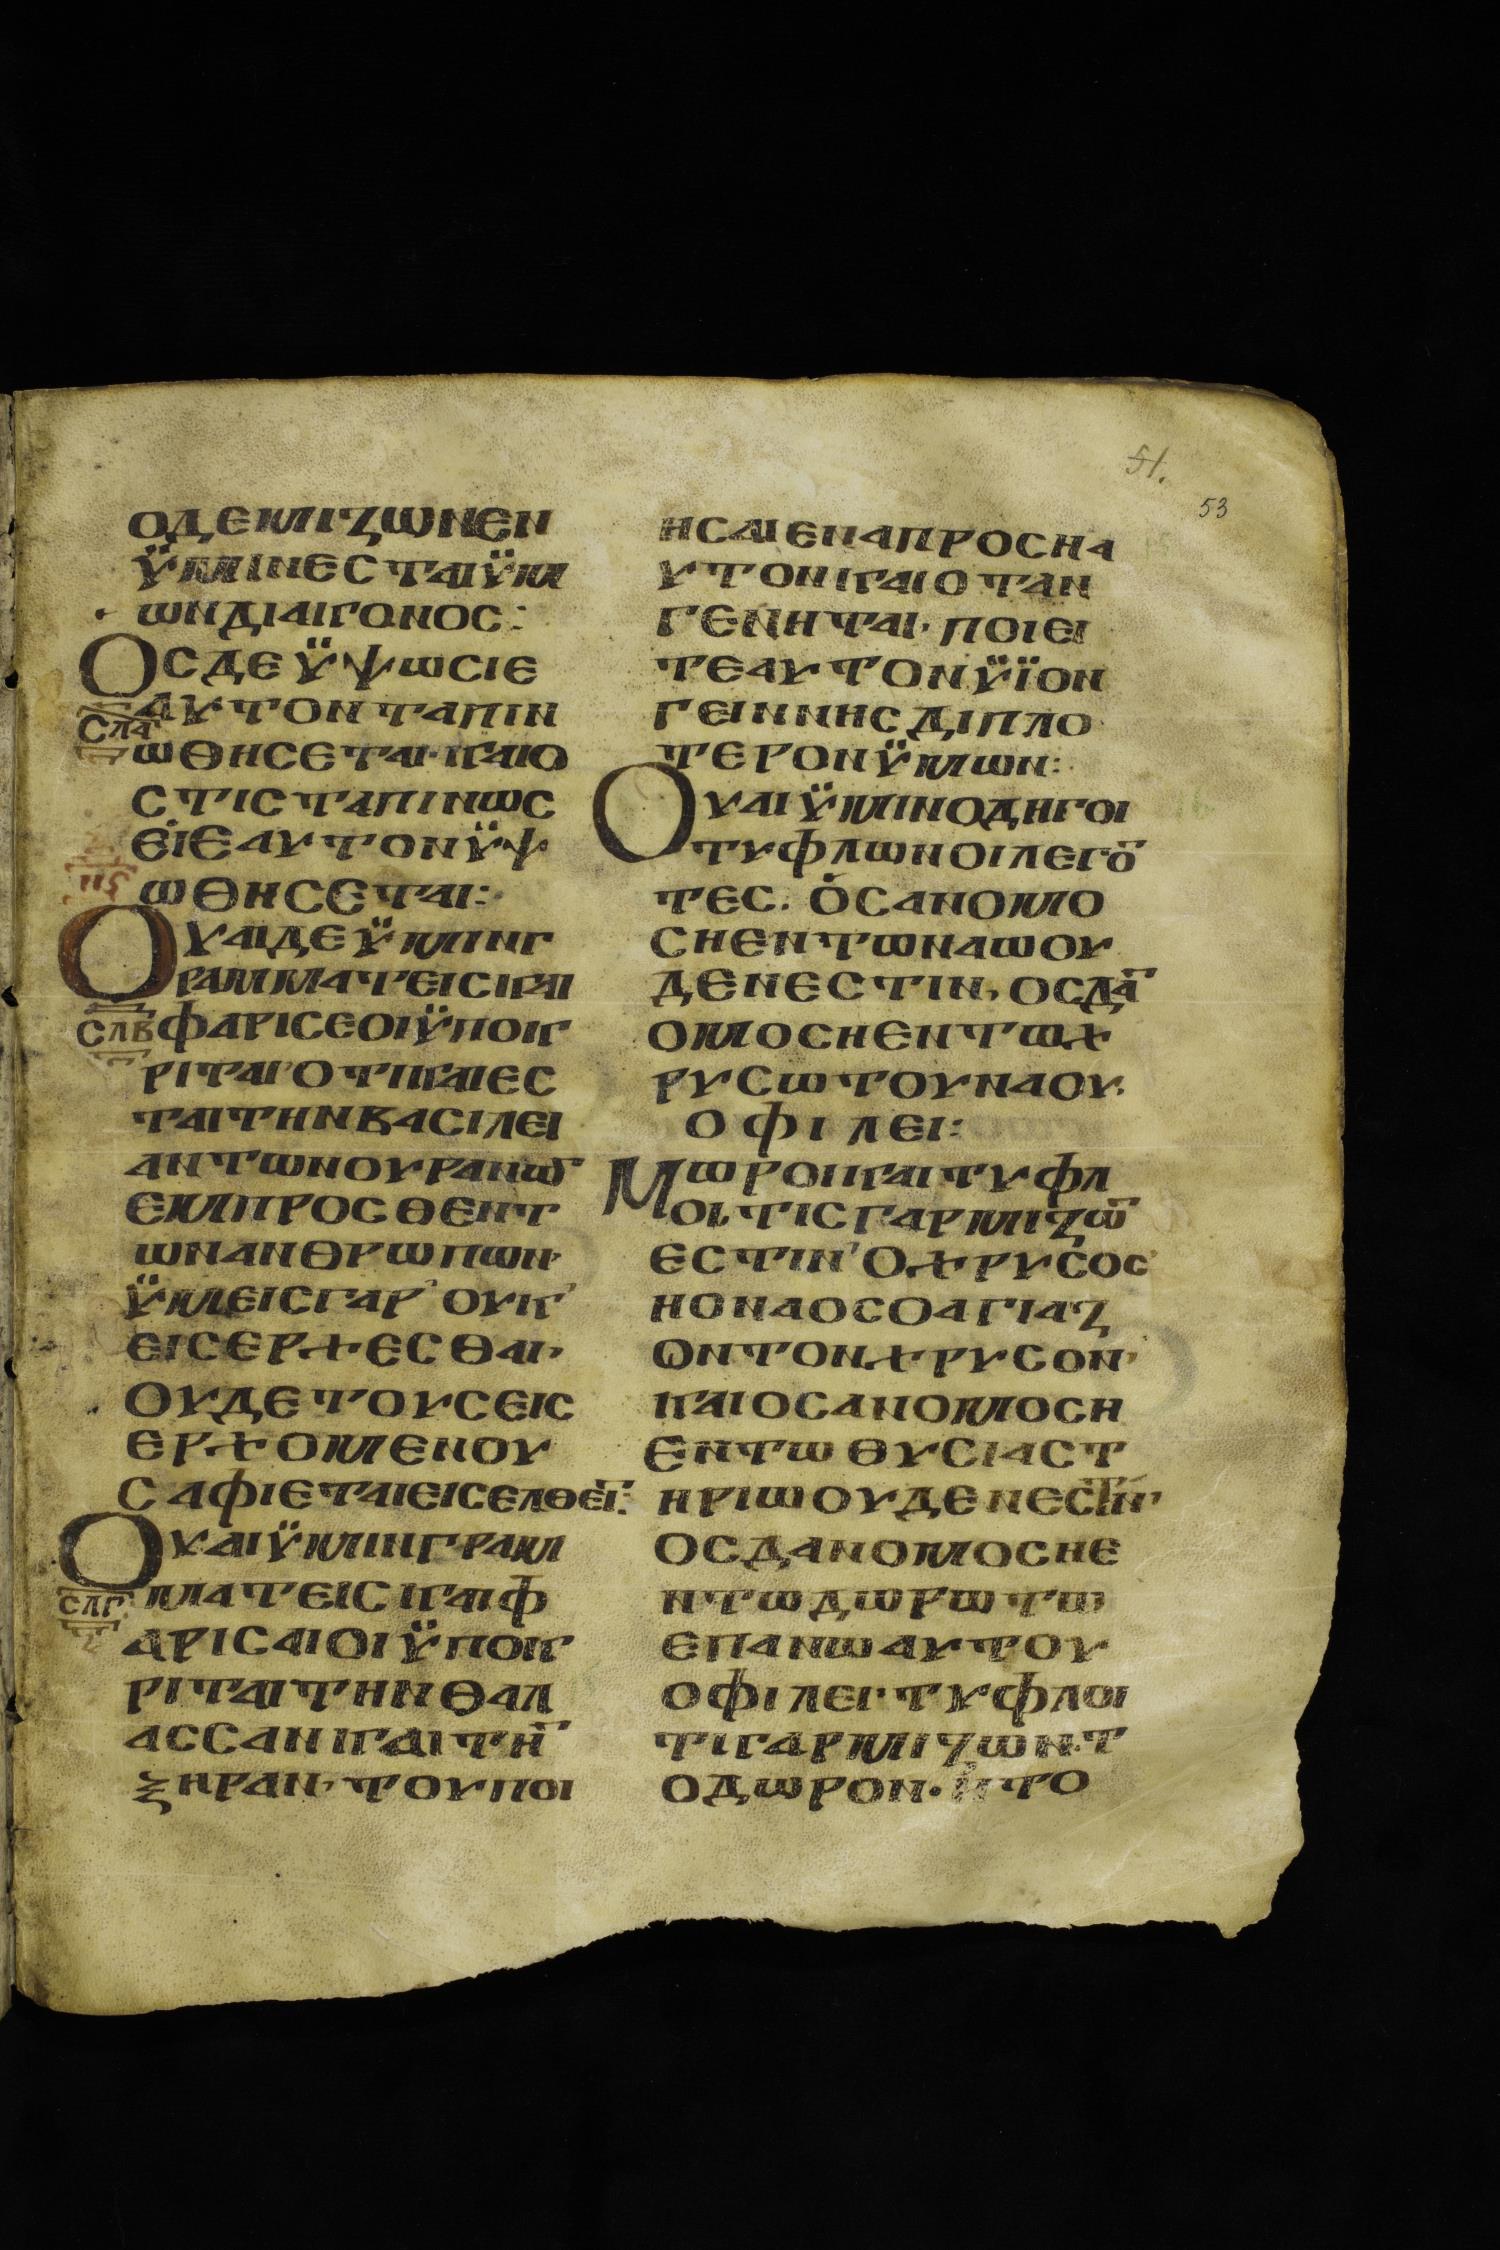 51.
53
ΟΔΕΜΙΖΩΝΕΝ
ΫΜΙΝΕСΤΑΙΫΜ
ΩΝΔΙΑΙΓΟΝΟС:
ΟСΔΕΫΨΩСΙΕ
ΑΥΤΟΝΤΑΠΙΝ
СΛΑ
ΩΘΗСΕΤΑΙ·ΚΑΙΟ
СΤΙСΤΑΠΙΝΩС
ΕΙΕΑΥΤΟΝΫΨ
ΩΘΗСΕΤΑΙ:
ΟΥΑΙΔΕΫΜΙΝΓ
ΡΑΜΜΑΤΕΙСΚΑΙ
СΛΒ
ΦΑΡΙСΕΟΙΫΠΟΚ
ΡΙΤΑΙ·ΟΤΙΚΛΙΕС
ΤΑΙΤΗΝΒΑСΙΛΕΙ
ΑΝΤΩΝΟΥΡΑΝΩ̄
ΕΜΠΡΟСΘΕΝΤ
ΩΝΑΝΘΡΩΠΩΝ·
ΫΜΕΙСΓΑΡ'ΟΥΚ'
ΕΙСΕΡΧΕСΘΑΙ·
ΟΥΔΕΤΟΥСΕΙС
ΕΡΧΟΜΕΝΟΥ
СΑΦΙΕΤΑΙΕΙСΕΛΘΕῙ:
ΟΥΑΙΫΜΙΝΓΡΑΜ
СΛΓ
ΜΑΤΕΙСΚΑΙΦ
ΑΡΙСΑΙΟΙΫΠΟΚ
ΡΙΤΑΙΤΗΝΘΑΛ
ΑССΑΝΚΑΙΤΗ̄
ΞΗΡΑΝ·ΤΟΥΠΟΙ
ΗСΑΙΕΝΑΠΡΟСΗΑ
ΥΤΟΝΚΑΙΟΤΑΝ
ΓΕΝΗΤΑΙ·ΠΟΙΕΙ
ΤΕΑΥΤΟΝΫΪΟΝ
ΓΕΙΝΝΗСΔΙΠΛΟ
ΤΕΡΟΝΫΜΩΝ:
ΟΥΑΙΫΜΙΝΟΔΗΓΟΙ
ΤΥΦΛΩΝΟΙΛΕΓΟ̄
ΤΕС. ΟСΑΝΟΜΟ
СΗΕΝΤΩΝΑΩΟΥ
ΔΕΝΕСΤΙΝ, ΟСΔᾹ
ΟΜΟСΗΕΝΤΩΧ
ΡΥСΩΤΟΥΝΑΟΥ.
ΟΦΙΛΕΙ:
ΜΩΡΟΙΚΑΙΤΥΦΛ
ΟΙ,ΤΙСΓΑΡΜΙΖΩ̄
ΕСΤΙΝ'ΟΧΡΥСΟС'
ΗΟΝΑΟСΟΑΓΙΑΖ
ΩΝΤΟΝΧΡΥСΟΝ·
ΚΑΙΟСΑΝΟΜΟСΗ
ΕΝΤΩΘΥСΙΑСΤ
ΗΡΙΩΟΥΔΕΝΕСΤΙΝ·
ΟСΔΑΝΟΜΟСΗΕ
ΝΤΩΔΩΡΩΤΩ
ΕΠΑΝΩΑΥΤΟΥ
ΟΦΙΛΕΙ·ΤΥΦΛΟΙ
ΤΙΓΑΡΜΙΖΩΝ·Τ
ΟΔΩΡΟΝ·ΗΤΟ